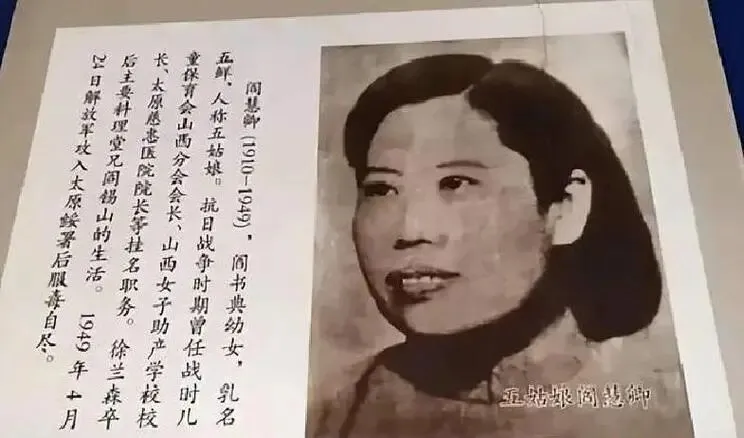 阎慧卿(1910—1949)，阎书典幼女，乳名
五鲜，人称五姑娘。抗日战争时期曾任战时儿
童保育会山西分会会长、山西女子助产学校校
长、太原慈惠医院院长等挂名职务。徐兰森卒
后主要料理堂兄阎锡山的生活。1949年4月
24日解放军攻入太原绥署后服毒自尽。
五姑娘阎慧卿